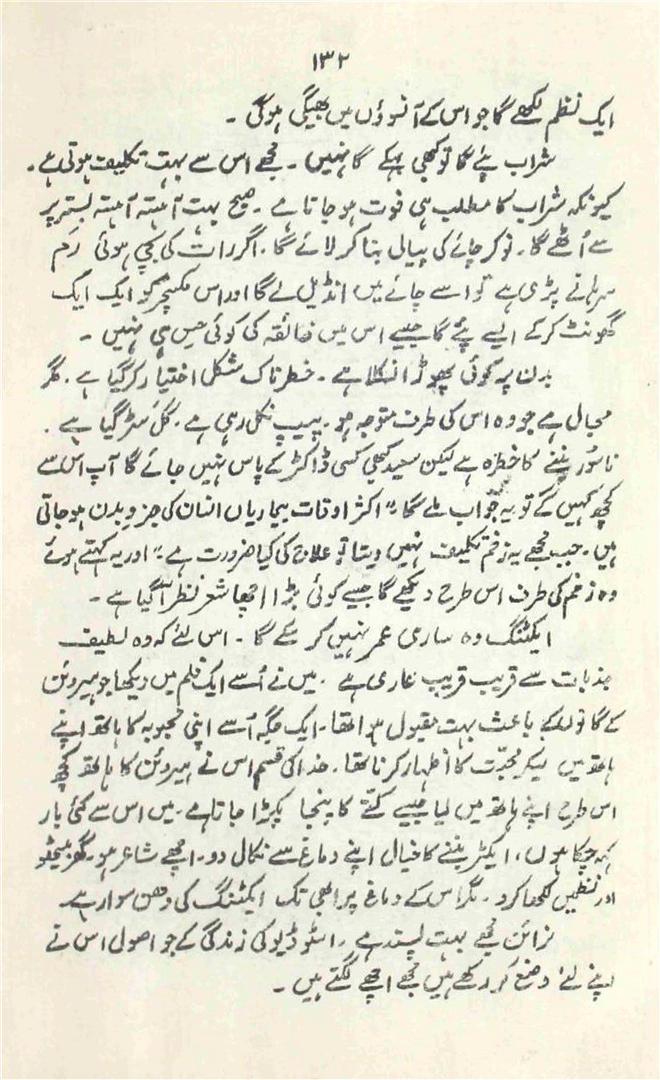 ۱۳۲
ایک نظم لکھے گا جو اس کے آنسوؤں میں بھیگی ہوگی ۔
شراب پئے گا تو کبھی بہکے گا نہیں ۔ مجھے اس سے بہت تکلیف ہوتی ہے ۔
کیونکہ شراب کا مطلب ہی فوت ہو جاتا ہے ۔ صبح بہت آہستہ آہستہ بستر پر
سے اُٹھے گا ۔ نوکر چائے کی پیالی بنا کر لائے گا ۔ اگر رات کی بچی ہوئی رم
سرہانے پڑی ہے تو اسے چائے میں انڈیل لے گا اور اس مکسچر کو ایک ایک
گھونٹ کرکے ایسے پئے گا جیسے اس میں ذائقہ کی کوئی حس ہی نہیں ۔
بدن پہ کوئی پھوڑا نکلا ہے ۔ خطرناک شکل اختیار کر گیا ہے . مگر
مجال ہے جو وہ اس کی طرف متوجہ ہو ۔ پیپ نکل رہی ہے ۔ گل سڑ گیا ہے .
ناسور بننے کا خطرہ ہے لیکن سعید کبھی کسی ڈاکٹر کے پاس نہیں جائے گا آپ اس سے
کچھ کہیں گے تو یہ جواب ملے گا ، " اکثر اوقات بیماریاں انسان کی جزو بدن ہو جاتی
ہیں ۔ جب مجھے یہ زخم تکلیف نہیں دیتا تو علاج کی کیا ضرورت ہے ۔ " اور یہ کہتے ہوئے
وہ زخم کی طرف اس طرح دیکھے گا جیسے کوئی بڑا اچھا شعر نظر آگیا ہے ۔
ایکٹنگ وہ ساری عمر نہیں کر سکے گا ۔ اس لئے کہ وہ لطیف
جذبات سے قریب قریب عاری ہے . میں نے اُسے ایک فلم میں دیکھا جو ہیروئن
کے گانوں کے باعث بہت مقبول ہوا تھا ۔ ایک جگہ اُسے اپنی محبوبہ کا ہاتھ اپنے
ہاتھ میں لیکر محبت کا اظہار کرنا تھا . خدا کی قسم اس نے ہیروئن کا ہاتھ کچھ
اس طرح اپنے ہاتھ میں لیا جیسے کتے کا پنجا پکڑا جاتا ہے ۔ میں اس سے کئی بار
کہہ چکا ہوں ، ایکٹر بننے کا خیال اپنے دماغ سے نکال دو . اچھے شاعر ہو ۔ گھر بیٹھو
اور نظمیں لکھا کرو . مگر اس کے دماغ پر ابھی تک ایکٹنگ کی دھن سوار ہے ۔
نرائن مجھے بہت پسند ہے . اسٹوڈیو کی زندگی کے جو اصول اس نے
اپنے لئے وضع کر رکھے ہیں مجھے اچھے لگتے ہیں ۔